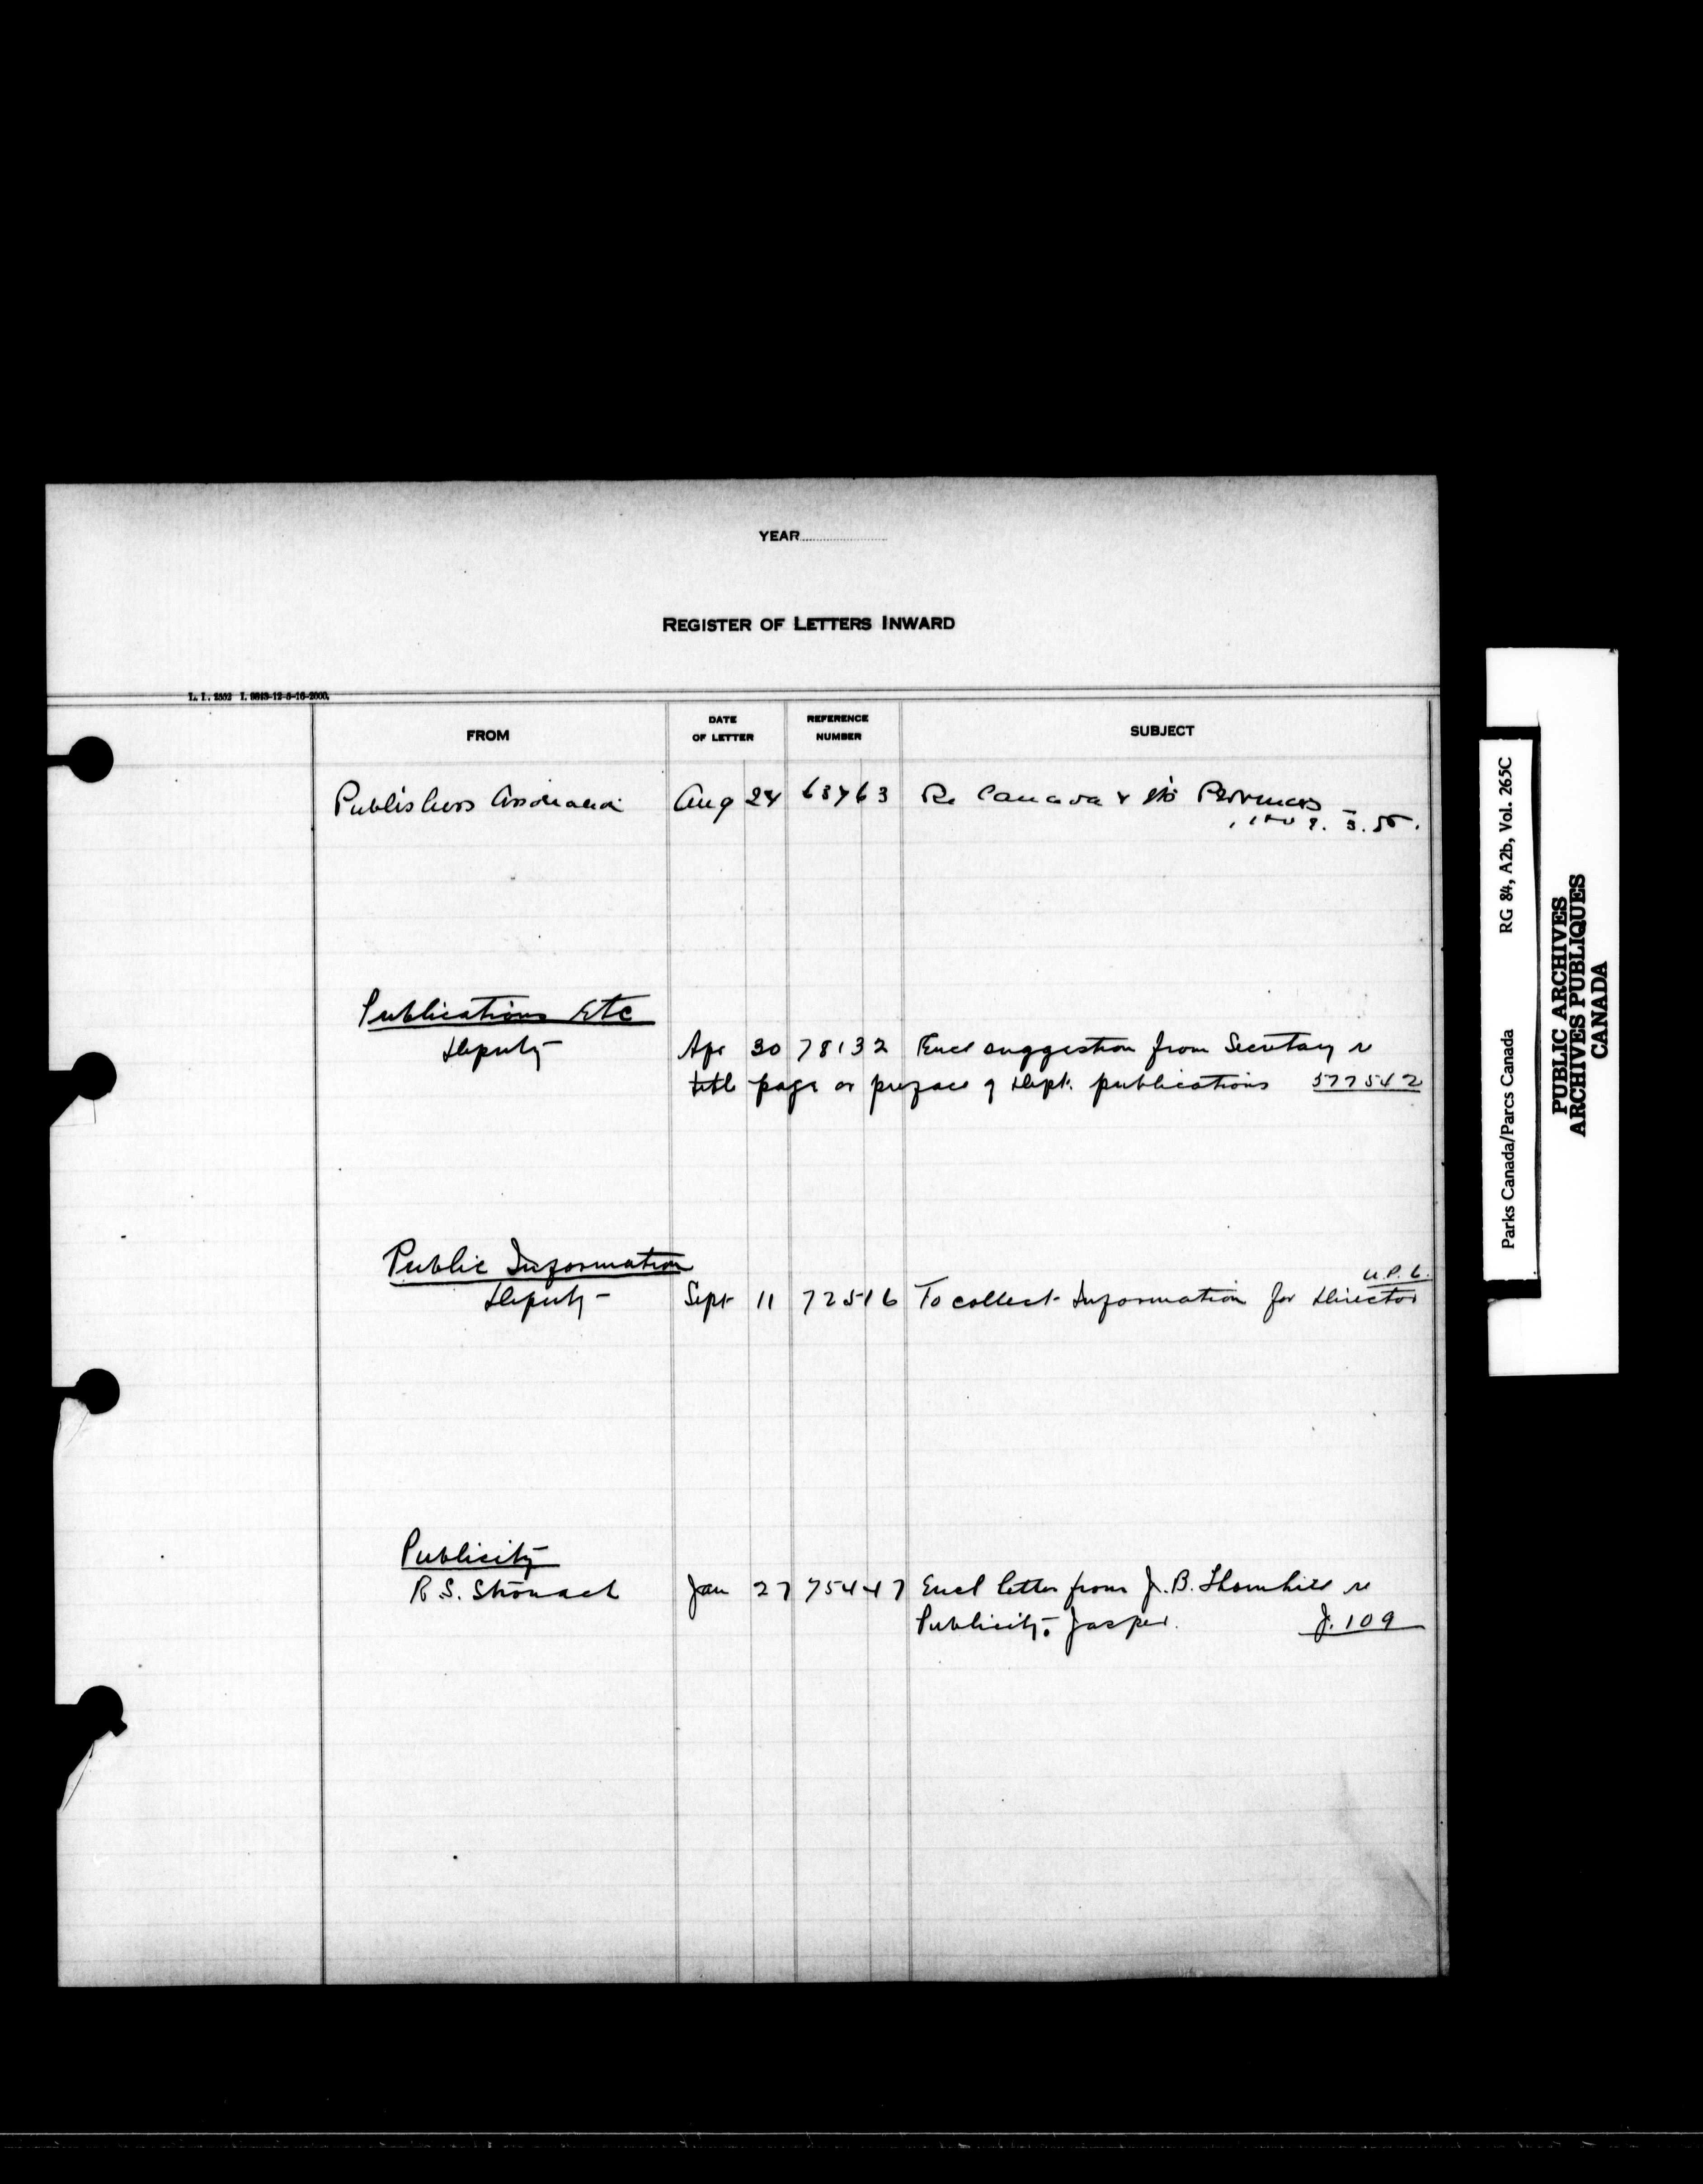 YEAR
REGISTER OF LETTERS INWARD
L. I. 2552 I. 9843-12-5-16-2000.
FROM DATE OF LETTER REFERENCE NUMBER SUBJECT
Publishers Association Aug 24 63763 Re Canada & its Provinces
Publications Etc
Deputy Apr 30 78132 Encl suggestion from Secretary re
title page or preface of Dept. publications 577542
Public Information
U.P.6.
Deputy Sept 11 72516 To collect Information for Director
Publicity
R.S. Stronach Jan 27 75447 Encl letter from J.B. Thornhill re
Publicity. Jasper. J.109
Parks Canada/Parcs Canada RG 84, A2b, Vol. 265C
PUBLIC ARCHIVES
ARCHIVES PUBLIQUES
CANADA